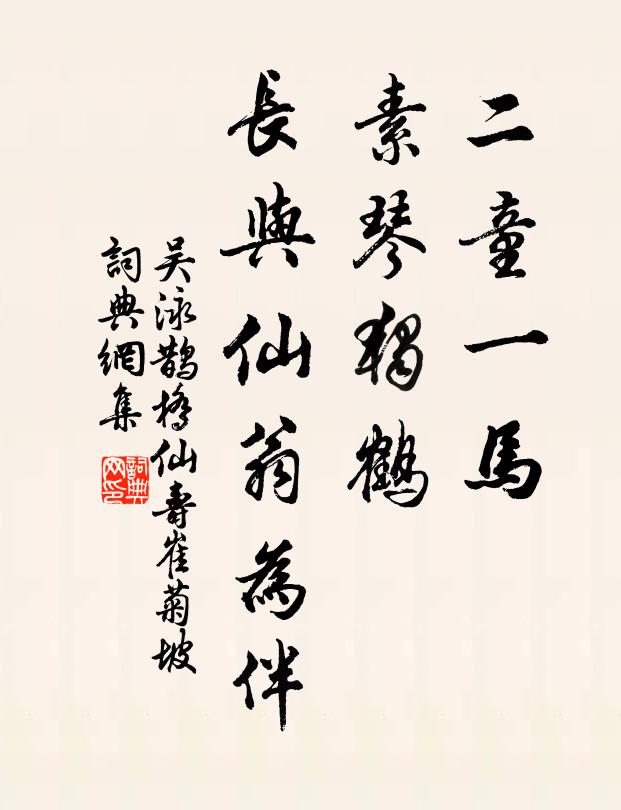 二童一馬
素琴獨鶴
長與仙翁為伴
吴泳鹊橋仙壽崔菊坡
詞典網集
詞典網印